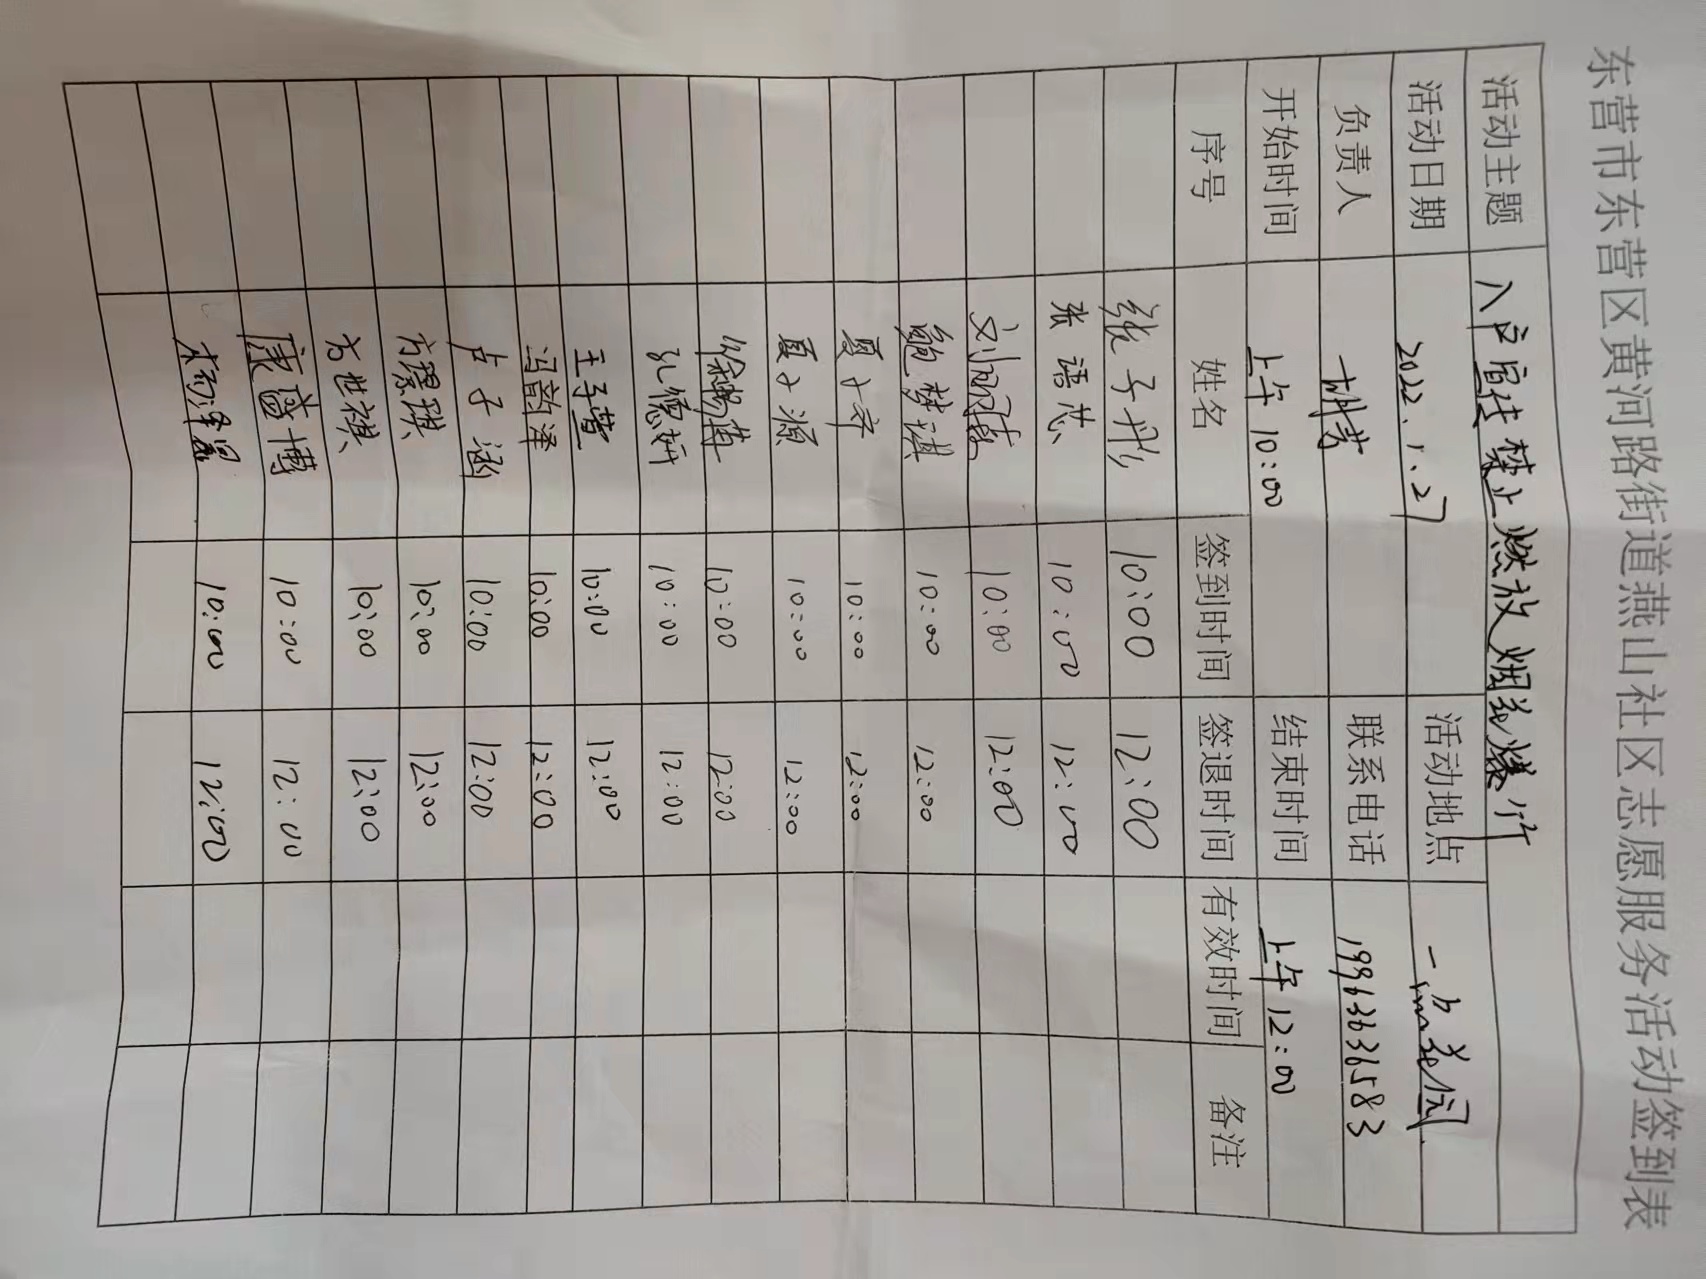 东营市东营区黄河路街道燕山社区志愿服务活动签到表
活动主题 入户宣传禁止燃放烟花爆竹
活动日期 2022.1.27 活动地点
负责人 联系电话 19963636583
开始时间 上午10:00 结束时间 上午12:00
序号 姓名 签到时间 签退时间 有效时间 备注
张子彤 10:00 12:00
张语芯 10:00 12:00
10:00 12:00
鲍梦琪 10:00 12:00
10:00 12:00
夏子源 10:00 12:00
10:00 12:00
孔德妍 10:00 12:00
王子萱 10:00 12:00
冯韵泽 10:00 12:00
卢子涵 10:00 12:00
10:00 12:00
10:00 12:00
康益博 10:00 12:00
10:00 12:00